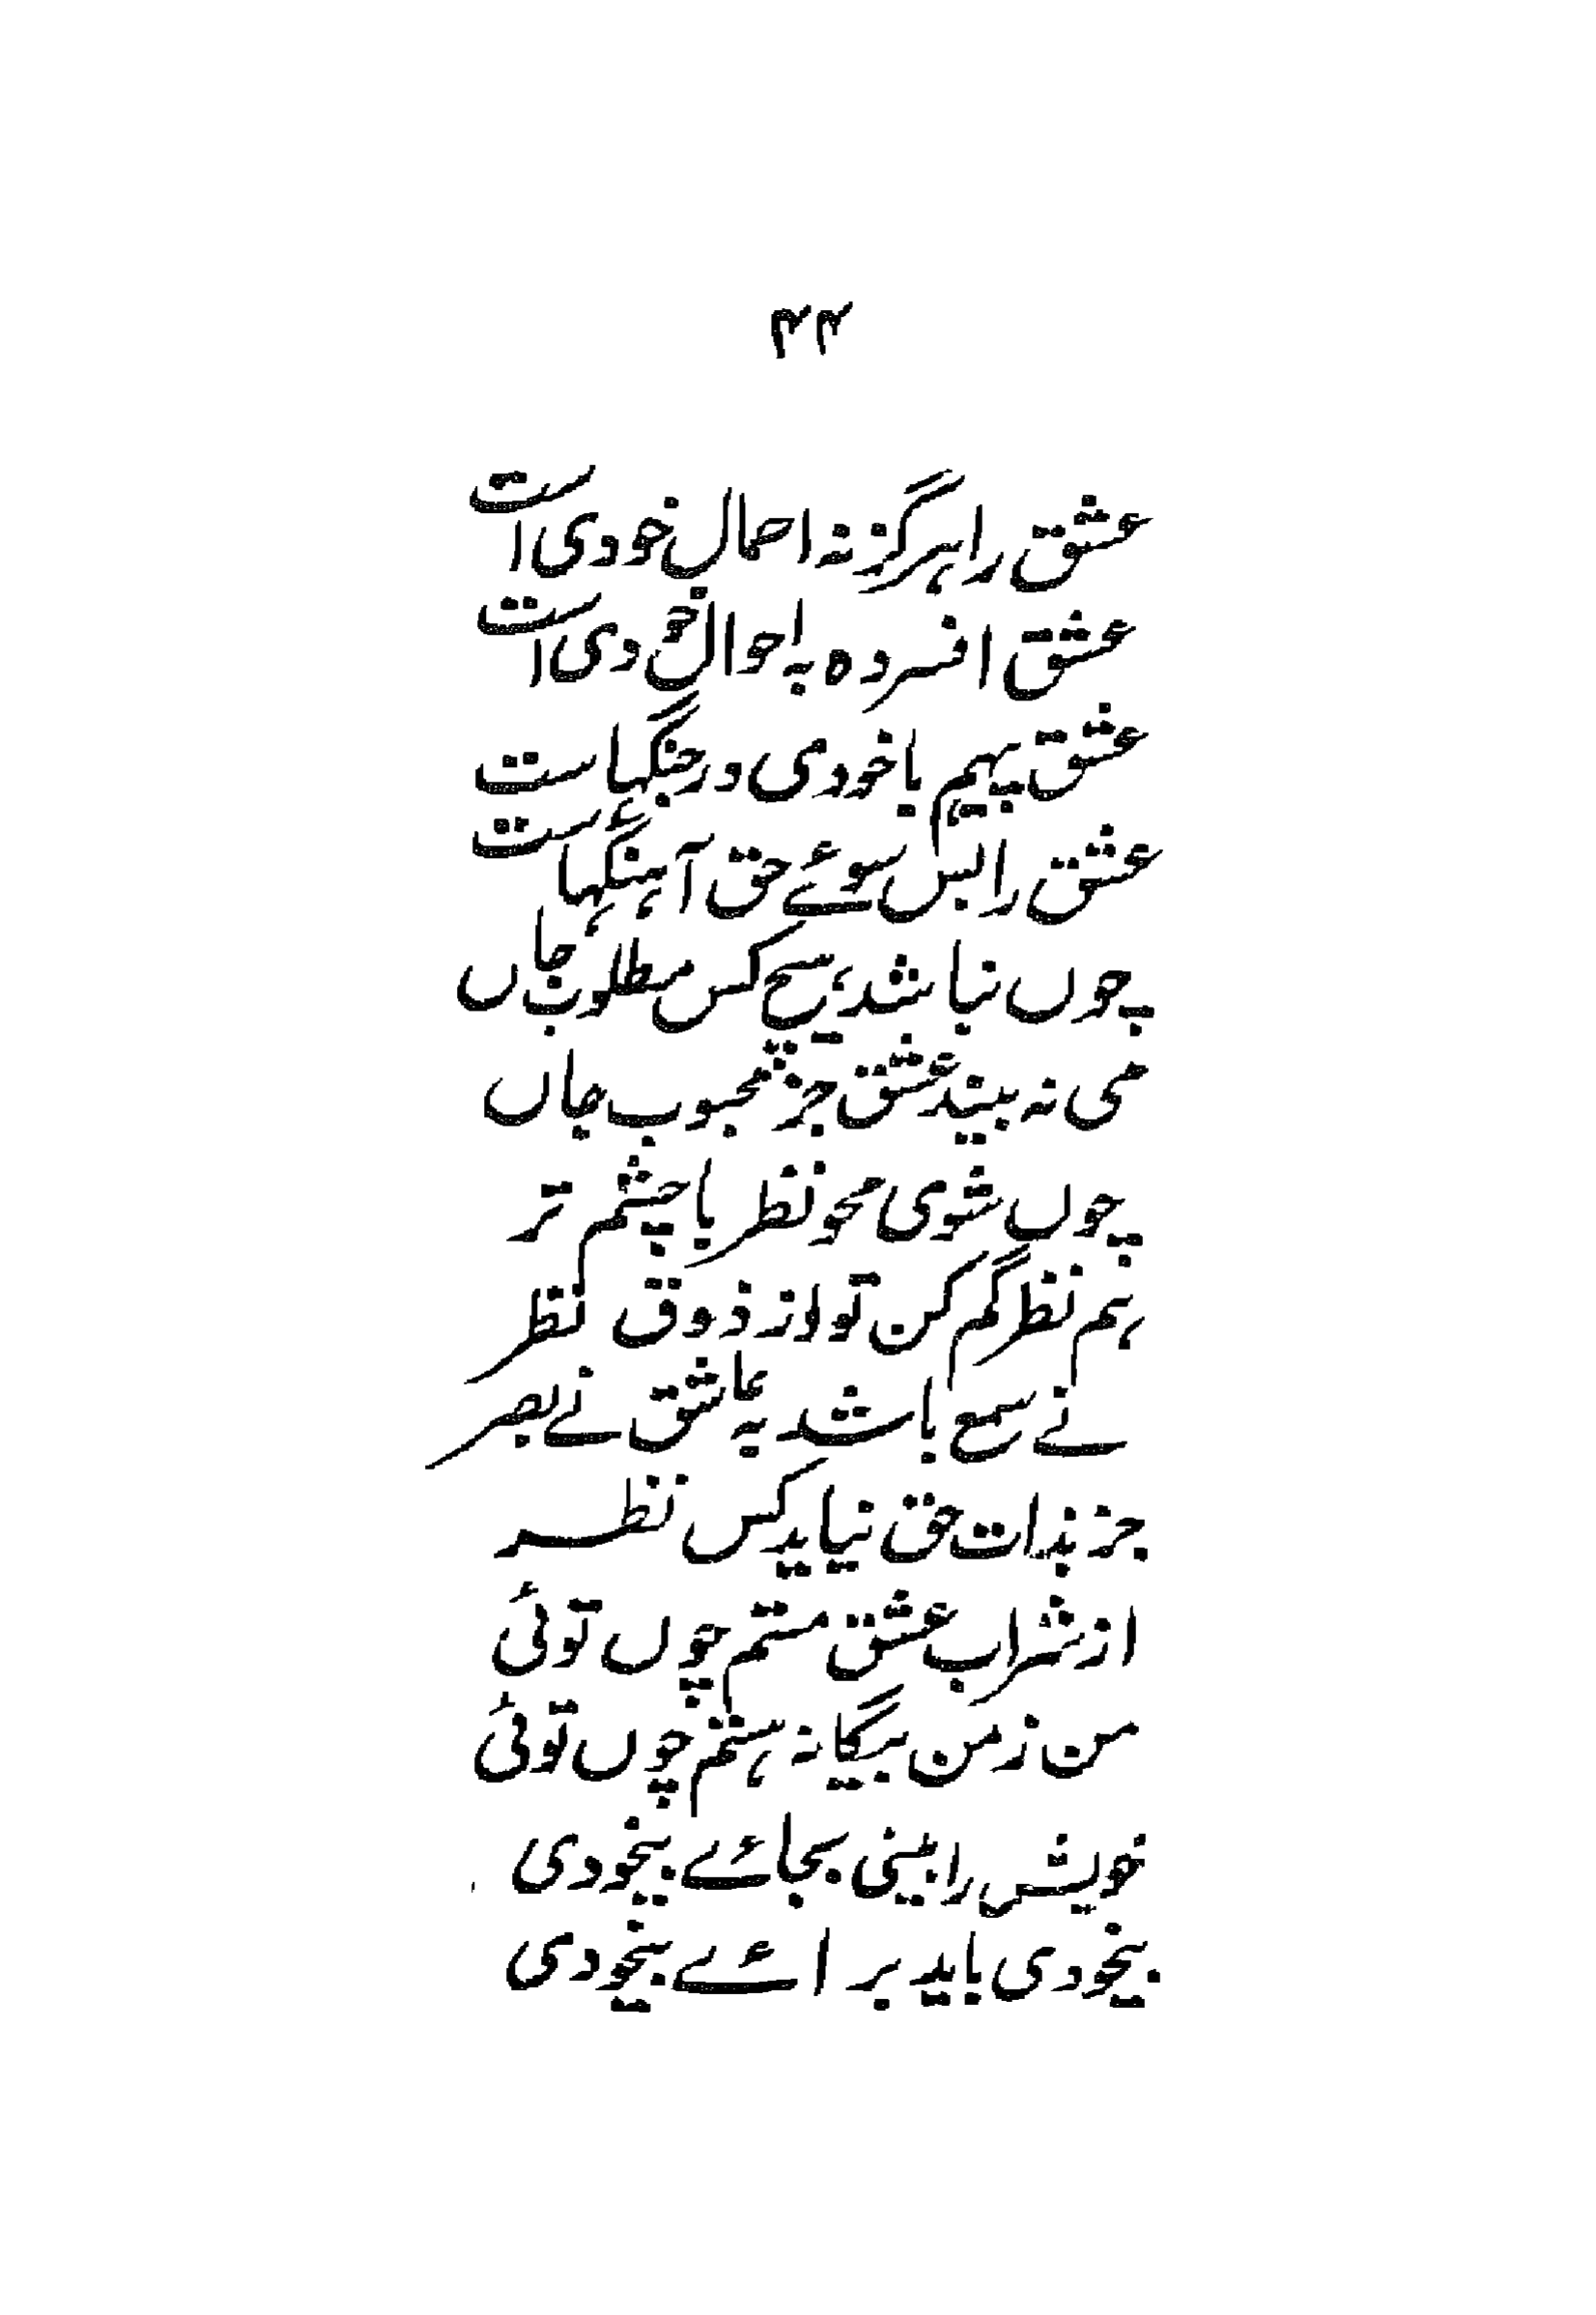 ۴۴
عشق را ہرگز نہ احمال خودی است
عشق افسردہ بہ احوال خودی است
عشق پیہم با خودی در جنگہاست
عشق را بس سوئے حق آہنگہاست
چوں نباشد ہیچ کس مطلوب جاں
می نہ بیند عشق جز محبوب جاں
چوں شوی محو نظر با چشم تر
ہم نظر گم کن تو از ذوق نظر
نے سمع باشد بہ عاشق نے بصر
جز بذات حق نیاید کس نظر
از شراب عشق مستم چوں توئی
من ز من بیگانہ ہستم چوں توئی
خویش را بینی بجائے بیخودی
بیخودی باید برائے بیخودی